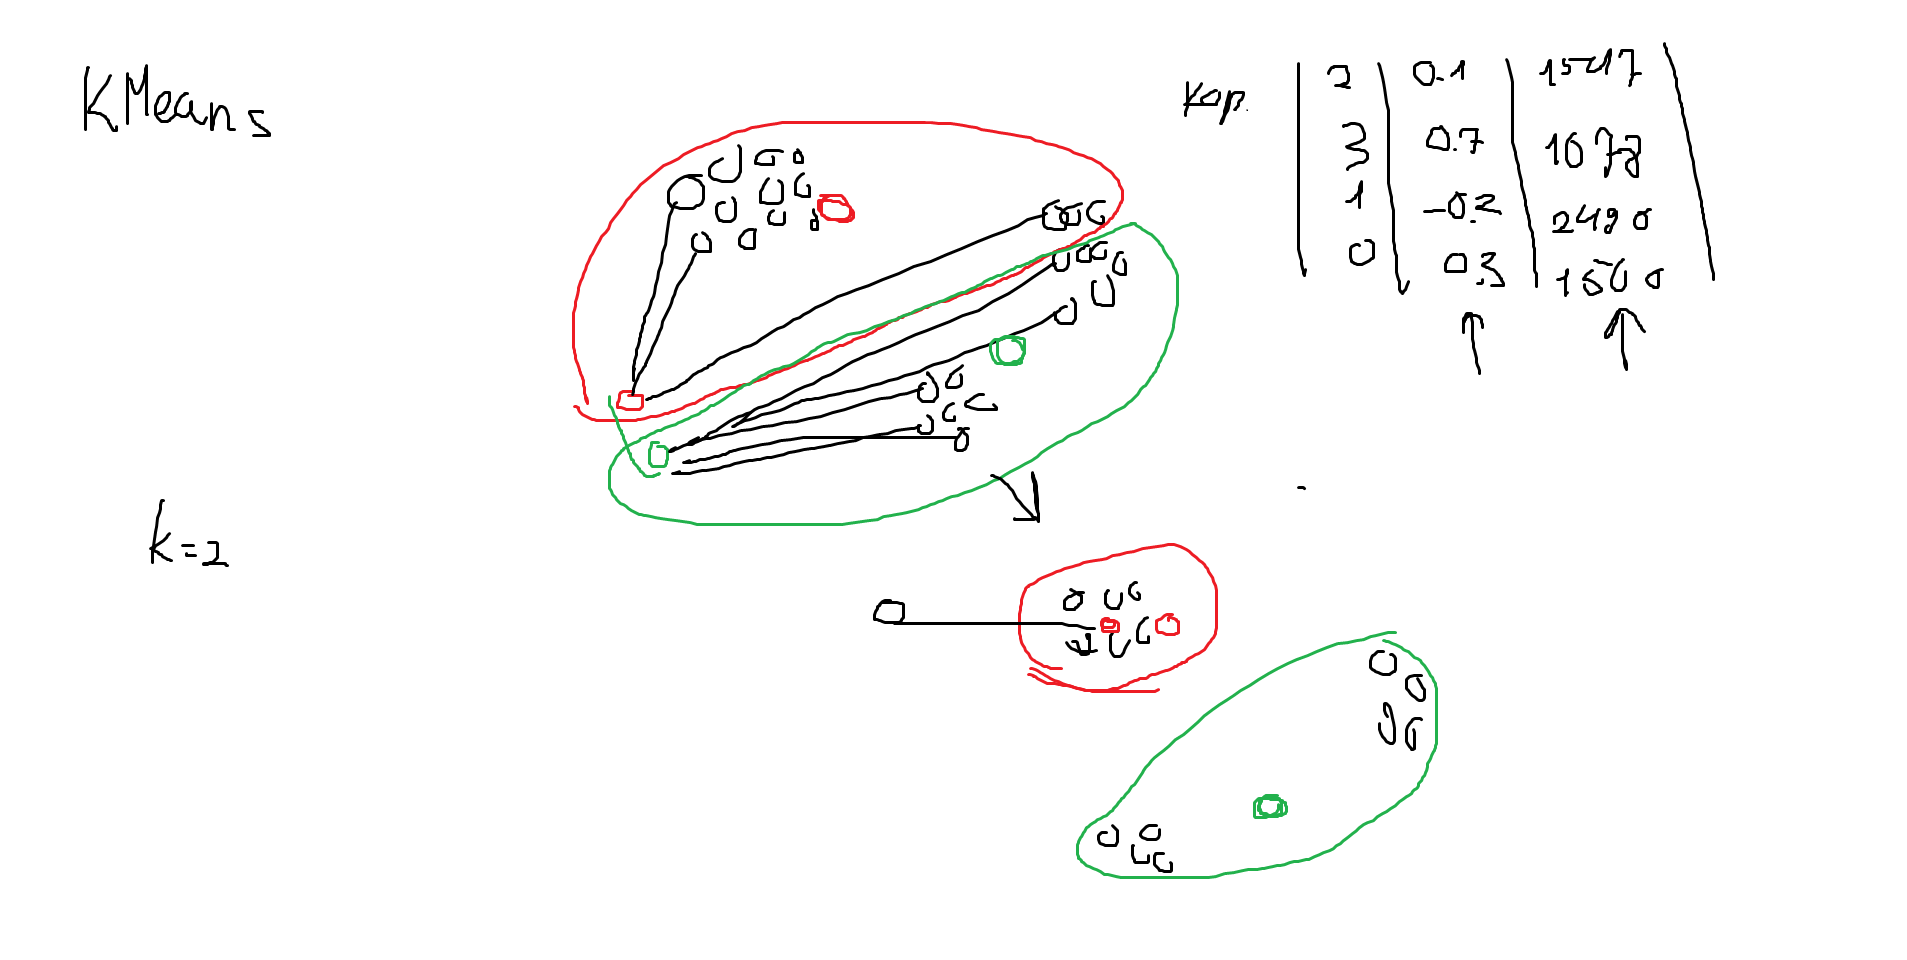 KMeans
кор. 2 0.1 1547
3 0.7 1078
1 -0.2 2490
0 0.3 1500
k=2